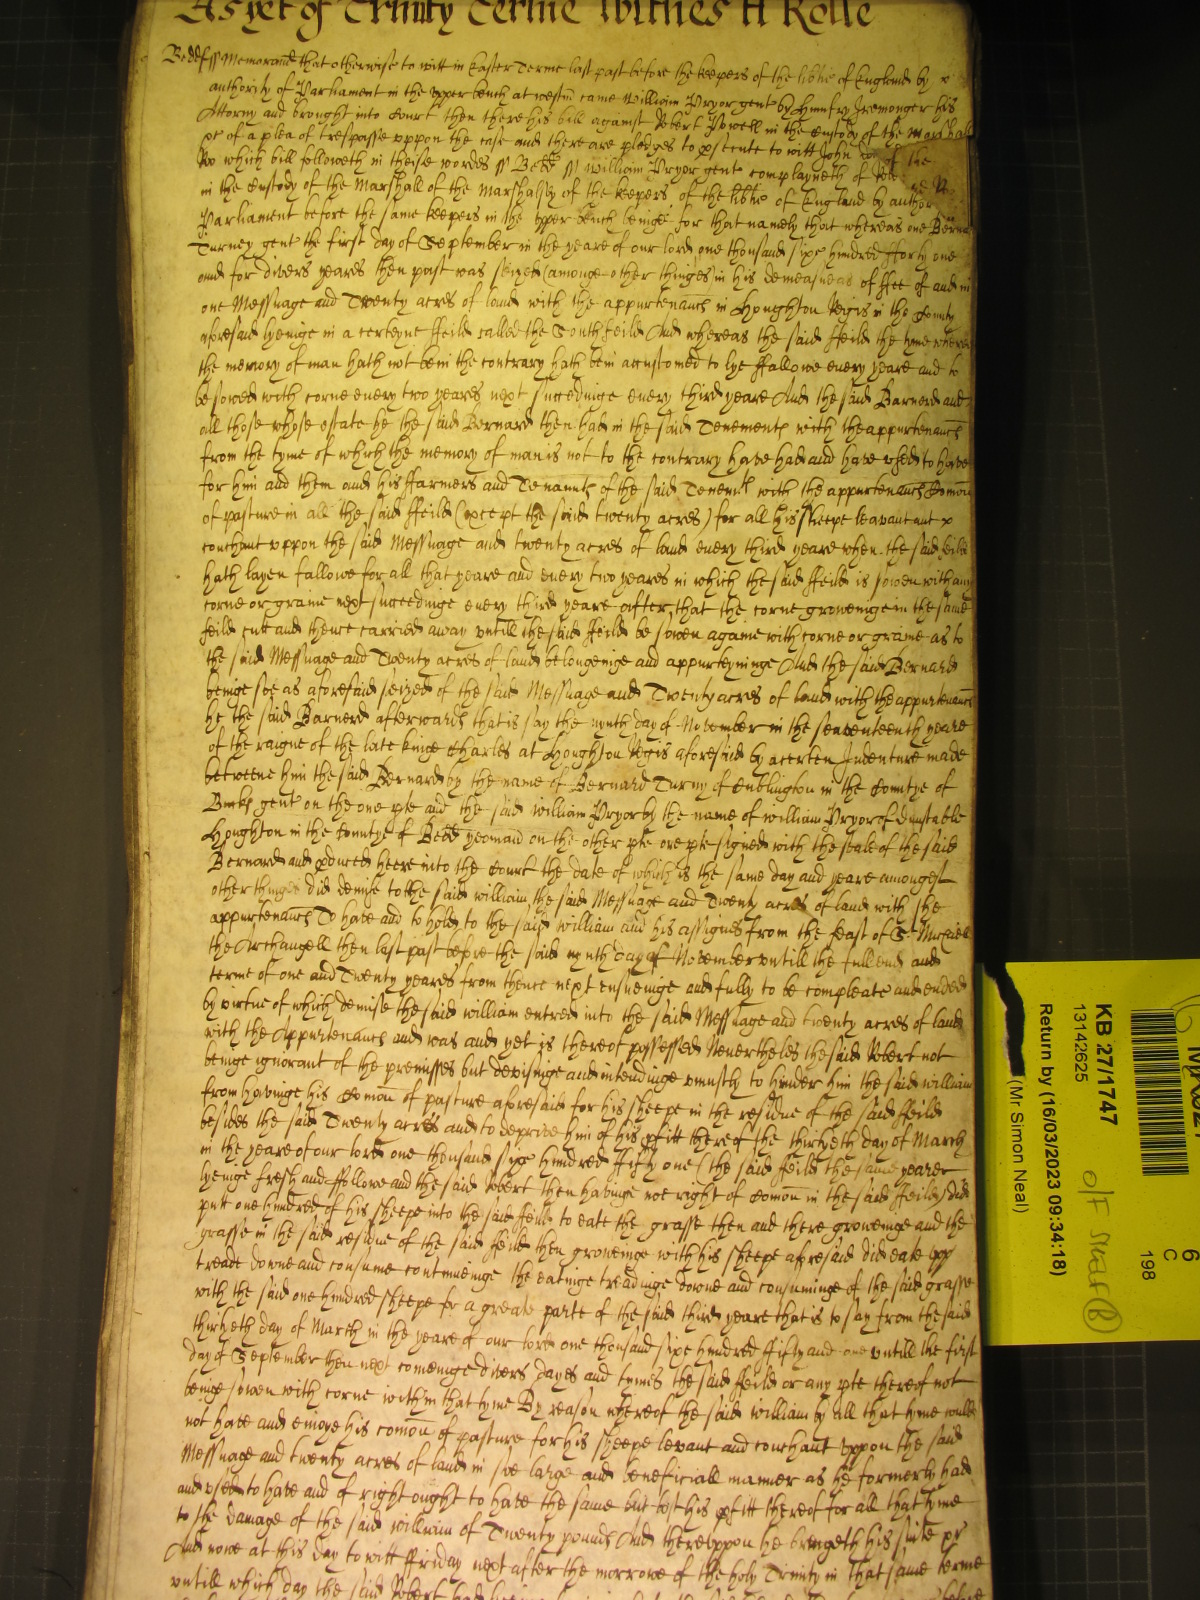 As yet of Trinity Terme Witnes H Rolle
Bedd ss Memorand that otherwise to witt in Easter Terme last past before the keepers of the libtie of England by
authority of Parliament in the upper bench at westm came William Pryor gent by Humfry Iremonger his
Attorny and brought into Court then there his bill against Robert Powell in the Custody of the Marshall
&c of a plea of trespasse uppon the case and there are pledges to psecute to witt John
Ro which bill followeth in theise wordes ss Bedd ss William Pryor gent complayneth of
in the Custody of the Marshall of the Marshalsey of the keepers of the libtie of England by author
Parliament before the same keepers in the upper bench beinge for that namely that whereas one Berna
Turney gent the first day of September in the yeare of our lord one thousand sixe hundred fforty one
and for divers yeares then past was seized (amonge other thinges) in his demeasneas of ffee of and in
one Messuage and Twenty acres of land with the appurtenancs in Houghton Regis in the County
aforesaid lyeinge in a certeyne ffeild called the Southfeild And whereas the said ffeild the tyme wherof
the memory of man hath not bein the contrary hath bein accustomed to lye ffallowe every yeare and to
be sowed with corne every two yeares next succedinge every third yeare And the said Barnerd and
all those whose estate he the said Bernard then had in the said Tenements with the appurtenancs
from the tyme of which the memory of man is not to the contrary have had and have used to have
for him and them and his ffarmers and Tenaunts of the said Tenemts with the appurtenancs Comon
of pasture in all the said ffeild (except the said twenty acres) for all his sheepe leavant and
couchant uppon the said Messuage and twenty acres of land every third yeare when the said feild
hath layen fallowe for all that yeare and every two yeares in which the said ffeild is sowen with any
corne or graine next succeedinge every third yeare after that the corne groweinge in the same
feild cutt and thence carried away untill the said ffeild be sowen againe with corne or graine as to
the said Messuage and Twenty acres of land belongeinge and appurteyninge And the said Bernard
beinge soe as aforesaid seized of the said Messuage and Twenty acres of land with the appurtenancs
he the said Barnerd afterwards that is say the nynth day of November in the seaventeenth yeare
of the raigne of the late kinge Charles at Houghton Regis aforesaid by a certen Indenture made
betweene him the said Bernard by the name of Bernard Turny of Cublington in the Countye of
Bucks gent on the one pte and the said William Pryor by the name of William Pryor of Dunstable
Houghton in the Countye of Bedd yeoman on the other pte one pte signed with the seale of the said
Bernard and pduced heere into the Court the date of which is the same day and yeare amongest
other thinges did demise to the said william the said Messuage and Twenty acres of land with the
appurtenancs To have and to hold to the said william and his assignes from the feast of St Michaell
the Archangell then last past before the said nynth day of November untill the full end and
terme of one and Twenty yeares from thence next ensueinge and fully to be compleate and ended
by virtue of which demise the said william entred into the said Messuage and twenty acres of land
with the Appurtenancs and was and yet is thereof possessed Neverthelés the said Robert not
beinge ignorant of the premisses but devisinge and intendinge uniustly to hinder him the said william
from haveinge his Comon of pasture aforesaid for his sheepe in the residue of the said ffeild
besides the said Twenty acres and to deprive him of his pfitt thereof the thirtyeth day of March
in the yeare of our lord one thousand sixe hundred ffifty one (the said feild the same yeare
lyeinge fresh and ffollowe and the said Robert then havinge noe right of Comon in the said ffeild) did
putt one hundred of his sheepe into the said feild to eate the grasse then and there groweinge and the
grasse in the said residue of the said feild then groweinge with his sheepe aforesaid did eate upp
treade downe and consume continueinge the eatinge treadinge downe and consuminge of the said grasse
with the said one hundred sheepe for a greate parte of the said third yeare that is to say from the said
thirtyeth day of March in the yeare of our lord one thousand sixe hundred ffifty and one untill the first
day of September then next comeinge divers dayes and tymes the said ffeild or any pte thereof not
beinge sowen with corne within that tyme By reason whereof the said william by all that tyme could
not have and enioye his comon of pasture for his sheepe levant and couchant uppon the said
Messuage and twenty acres of land in soe large and beneficiall manner as he formerly had
and used to have and of right ought to have the same but lost his pfitt thereof for all that tyme
to the damage of the said william of Twenty pounds And thereuppon he bringeth his suite &c
And nowe at this day to witt ffriday next after the morrowe of the holy Trinity in that same terme
untill which day the said Robert had
KB 27/1747
13142625
Return by (16/03/2023 09:34:18)
(Mr Simon Neal)
6
C
198
O/F